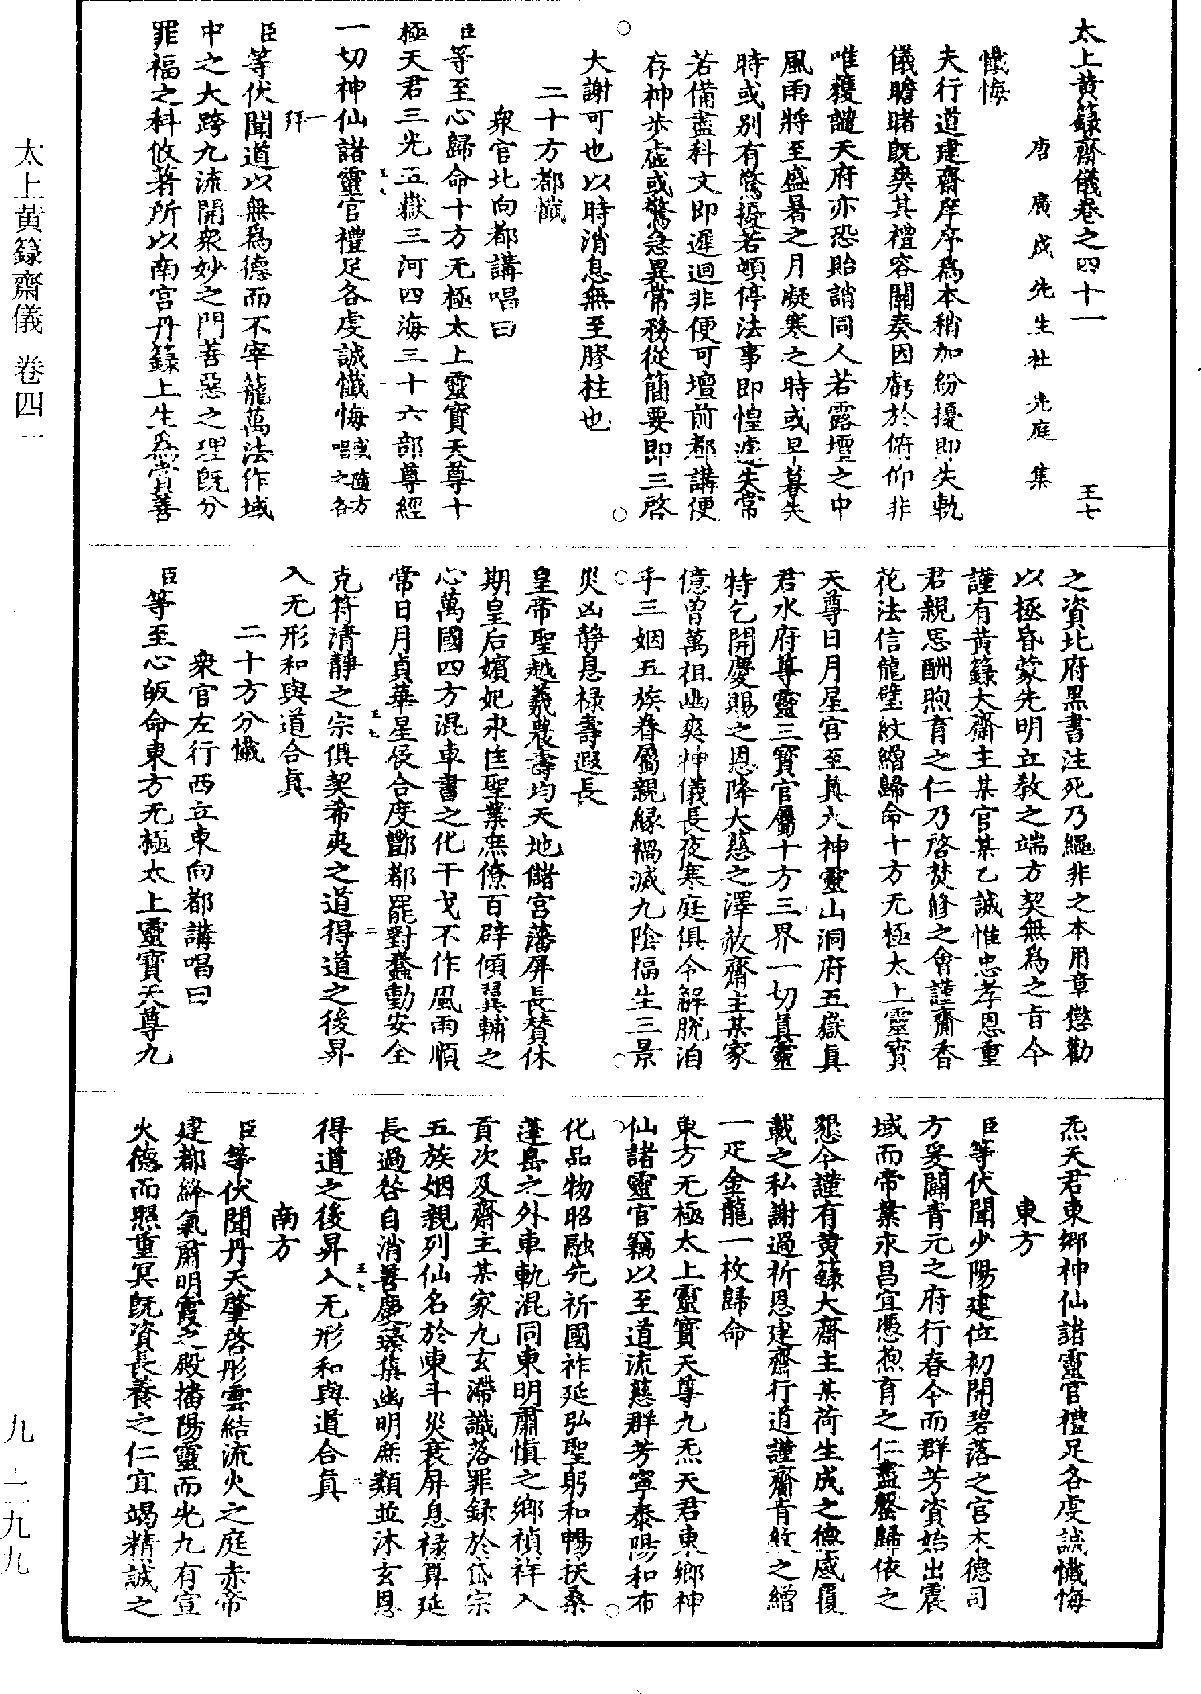 太上黃籙齋儀卷之四十一　王七
唐廣成先生杜光庭集
懺悔
夫行道建齋庠序爲本稍加紛擾即失軌
儀瞻睹既爽其禮容關奏因虧於俯仰非
唯穫譴天府亦恐貽誚同人若露壇之中
風雨將至盛暑之月凝寒之時或早暮失
時或别有驚擾若頓停法事即惶遽失常
若備盡科文即遲迴非便可壇前都講便
存神步虛或驚急異常務從簡要即三啓
大謝可也以時消息無至膠柱也
二十方都懺
衆官北向都講唱曰
臣等至心歸命十方无極太上靈寶天尊十
極天君三光五嶽三河四海三十六部尊經
一切神仙諸靈官禮足各虔誠懺悔或隨方唱之各
一拜
臣等伏聞道以無爲德而不宰籠萬法作域
中之大跨九流開衆妙之門善惡之理既分
罪福之科攸著所以南宫丹籙上生爲賞善
之資北府黑書注死乃繩非之本用章懲勸
以極昏蒙先明立教之端方契無爲之旨今
謹有黃籙大齋主某官某乙誠惟忠孝恩重
君親思酬煦育之仁乃啓焚修之會謹齎香
花法信龍璧紋繒歸命十方无極太上靈寶
天尊日月星官至真大神靈山洞府五嶽真
君水府尊靈三寶官屬十方三界一切真靈
特乞開慶賜之恩降大慈之澤赦齋主某家
億曾萬祖幽爽神儀長夜寒庭俱令解脫洎
乎三姻五族眷屬親緣禍滅九陰福生三景
災凶静息禄壽遐長
皇帝聖越羲農壽均天地儲宫藩屏長贊休
期皇后嬪妃永匡聖業庶僚百辟傾翼輔之
心萬國四方混車書之化干戈不作風雨順
常日月貞華星辰合度酆都罷對蠢動安全
克符清靜之宗俱契希夷之道得道之後昇
入无形和與道合真
二十方分懺
衆官左行西立東向都講唱曰
臣等至心皈命東方无極太上靈寶天尊九
炁天君東鄉神仙諸靈官禮足各虔誠懺悔
東方
臣等伏聞少陽建位初開碧落之官木德司
方爰闢青元之府行春令而群芳資始出震
域而帝業永昌宜憑煦育之仁盡罄歸依之
懇今謹有黃籙大齋主某荷生成之德感覆
載之私謝過祈恩建齋行道謹齎青紋之繒
一疋金龍一枚歸命
東方无極太上靈寶天尊九炁天君東鄉神
仙諸靈官竊以至道流慈群芳寧泰陽和布
化品物昭融先祈國祚延弘聖躬和暢扶桑
蓬島之外車軌混同東明肅慎之鄉禎祥入
貢次及齋主某家九玄滯識落罪録於岱宗
五族姻親列仙名於東斗災衰屏息禄算延
長過咎自消善慶臻集幽明庶類並沐玄恩
得道之後昇入无形和與道合真
南方
臣等伏聞丹天肇啓彤雲結流火之庭赤帝
建都絳氣肅明霞之殿播陽靈而光九有宣
火德而照重冥既資長養之仁宜竭精誠之
太上黃籙齋儀　卷四一
九－二九九